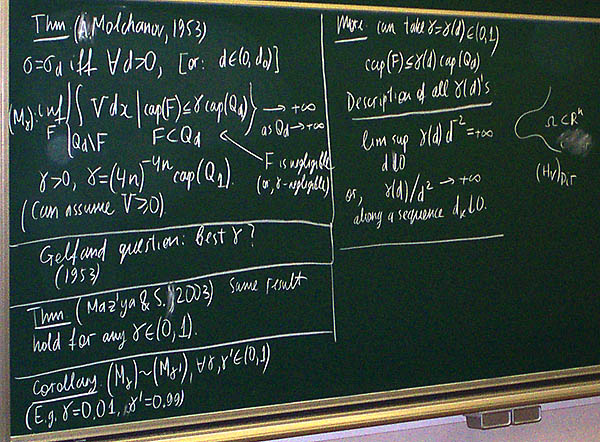 Thm (A. Molchanov, 1953)
σ=σ_d iff ∀d>0, [or: d∈(0,d₀)]
(M_γ): inf_F {∫_{Q_d\F} V dx | cap(F)≤γcap(Q_d)} → +∞
F⊂Q_d as Q_d→+∞
F is negligible
(or, γ-negligible)
γ>0, γ=(4n)^{-4n} cap(Q₁).
(Can assume V≥0).
Gelfand question: Best γ?
(1953)
Thm. (Maz'ya & S., 2003) Same result
hold for any γ∈(0,1).
Corollary. (M_γ)~(M_γ'), ∀γ,γ'∈(0,1)
(E.g. γ=0.01, γ'=0.99)
More: can take γ=γ(d)∈(0,1)
cap(F)≤γ(d)cap(Q_d)
Description of all γ(d)'s
lim sup_{d↓0} γ(d)d^{-2}=+∞
or, γ(d)/d² → +∞
along a sequence d_k↓0.
Ω⊂ℝⁿ
(H_V)_Dir